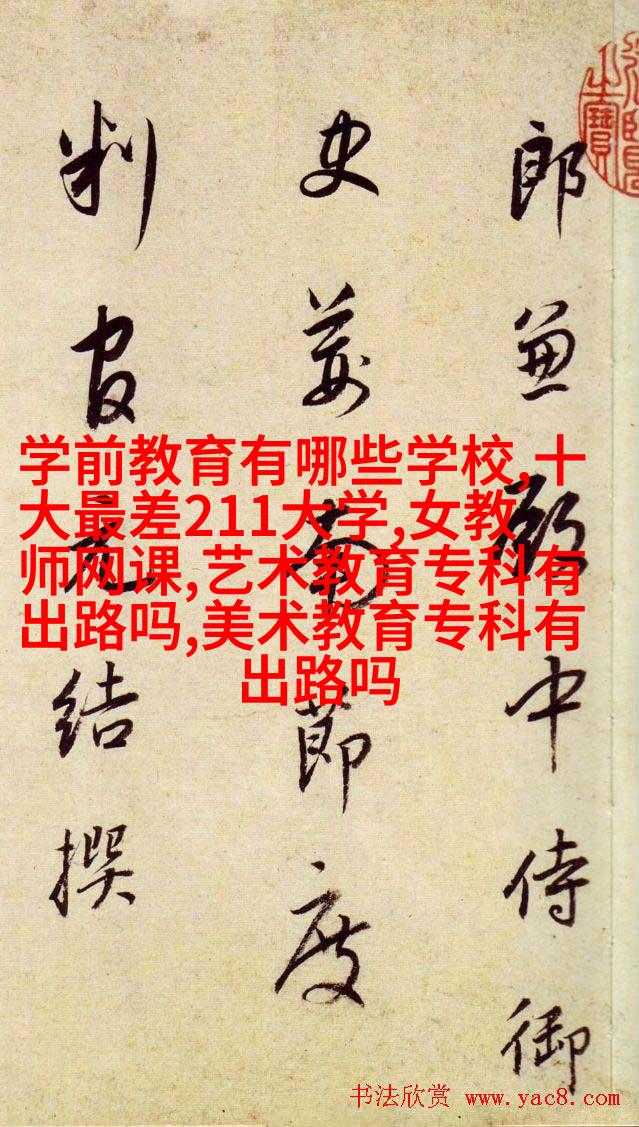 郎兼殿中侍御
史荊南節度
判官元結撰
学前教育有哪些学校,十
大最差211大学,女教
师网课,艺术教育专科有
出路吗,美术教育专科有
出路吗
书法欣赏 www.yac8.com